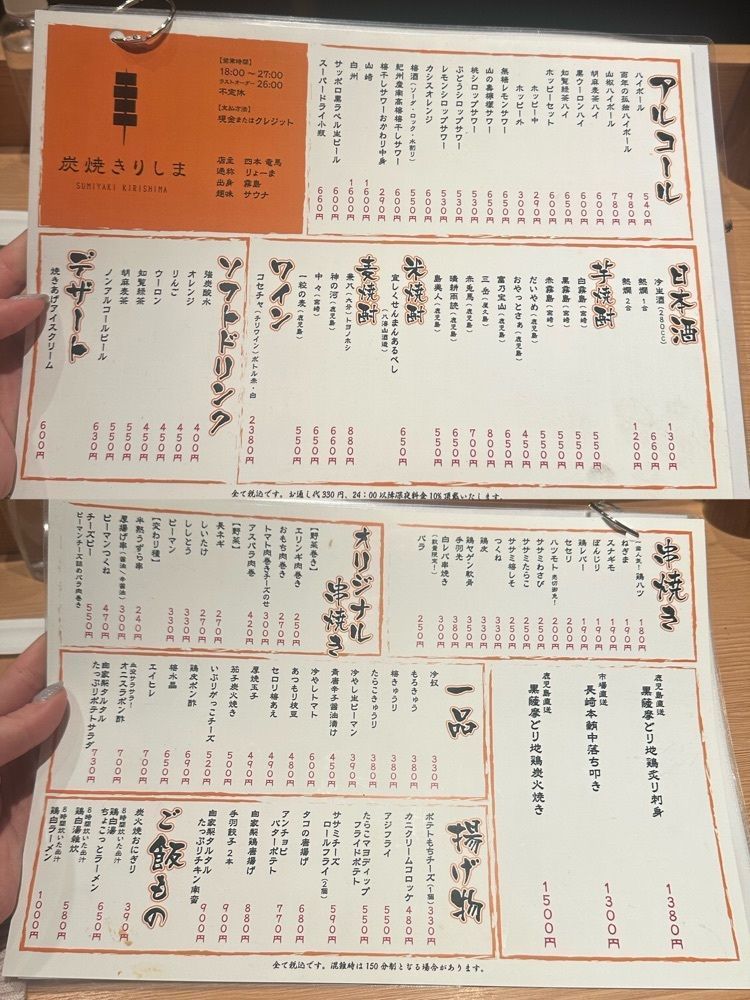 アルコール
ハイボール 540円
百年の孤独ハイボール 980円
山椒ハイボール 780円
胡麻麦茶ハイ 600円
黒ウーロンハイ 600円
知覧緑茶ハイ
ホッピーセット
ホッピー中 290円
ホッピー外 300円
黒糖レモンサワー
桃シロップサワー 530円
ぶどうシロップサワー 530円
レモンシロップサワー 530円
カシスオレンジ
梅酒(ソーダ・ロック・水割り) 550円
紀州産南高梅梅干しサワー 600円
梅干しサワーおかわり中身 290円
山崎 1600円
白州 1100円
サッポロ黒ラベル生ビール 660円
スーパードライ小瓶 660円
【営業時間】
18:00～27:00
ラストオーダー 26:00
不定休
【支払方法】
現金またはクレジット
炭焼きりしま
SUMIYAKI KIRISHIMA
店主 四本 竜馬
通称 りょーま
出身 霧島
趣味 サウナ
日本酒
冷生酒(280cc) 1300円
熱燗 1合 660円
熱燗 2合 1200円
芋焼酎
白霧島(宮崎) 550円
黒霧島(宮崎) 550円
赤霧島(宮崎) 550円
だいやめ(鹿児島) 550円
おやっとさぁ(鹿児島) 450円
富乃宝山(鹿児島) 650円
三岳(屋久島) 800円
赤兎馬(鹿児島) 700円
晴耕雨読(鹿児島) 650円
島美人(鹿児島) 550円
米焼酎
宜しくせんまんあるべし(八海山酒造) 650円
麦焼酎
兼八(大分)トヨノホシ 880円
神の河(鹿児島) 660円
中々(宮崎) 650円
一粒の麦(鹿児島) 550円
ワイン
コセチャ(チリワイン)ボトル赤・白 2380円
ソフトドリンク
強炭酸水 400円
オレンジ 450円
りんご 450円
ウーロン 450円
知覧緑茶 550円
胡麻麦茶 550円
ノンアルコールビール 630円
デザート
焼きあげアイスクリーム 600円
全て税込です。お通し代330円、24:00以降深夜料金10%頂戴いたします。
串焼き
一番人気！鶏ハツ 180円
ねぎま 190円
スナギモ 190円
ぼんじり 190円
鶏レバー 190円
セセリ 200円
ハツモト 売切御免！ 200円
ササミわさび 250円
ササミたらこ 250円
ササミ梅しそ 250円
つくね 250円
鶏皮
鶏ヤゲン軟骨
手羽先
白レバ串焼き
(数量限定！)
バラ 250円
オリジナル串焼き
【野菜巻き】
ネギ肉巻き 250円
おもち肉巻き 270円
トマト肉巻きチーズのせ 300円
アスパラ肉巻き 420円
【野菜】
長ネギ 270円
しいたけ 270円
ししとう 330円
ピーマン 330円
【変わり種】
半熟うずら串 240円
厚揚げ串(醤油/辛醤油) 300円
ピーマンつくね 470円
チーズピー
ピーマンチーズ詰めバラ肉巻き 550円
鹿児島直送
黒薩摩どり地鶏炙り刺身 1380円
市場直送
長崎本鮪中落ち叩き 1300円
鹿児島直送
黒薩摩どり地鶏炭火焼き 1500円
一品
冷奴 330円
もろきゅう 380円
梅きゅうり 380円
たらこきゅうり 380円
冷やし生ピーマン 390円
青唐辛子醤油漬け 450円
冷やしトマト 480円
あつもり枝豆 480円
セロリ梅あえ 490円
厚焼玉子 490円
茄子炭火焼き 500円
いぶりがっこチーズ 520円
鶏皮ポン酢 690円
梅水晶 650円
エイヒレ 700円
血液サラサラ！
オニスラポン酢 700円
自家製タルタル
たっぷりポテトサラダ 730円
揚げ物
ポテトもちチーズ(1個) 330円
カニクリームコロッケ 480円
アジフライ 550円
たらこマヨディップ
フライドポテト 550円
ササミチーズ
ロールフライ(2個) 590円
タコの唐揚げ 680円
アンチョビ
バターポテト 770円
自家製鶏唐揚げ 880円
手羽餃子2本 900円
自家製タルタル
たっぷりチキン南蛮 900円
ご飯もの
炭火焼おにぎり 390円
8時間炊いた出汁
鶏白湯
ちょこっとラーメン 650円
8時間炊いた出汁
鶏白湯雑炊 580円
鶏白ラーメン 1000円
全て税込です。混雑時は150分制となる場合があります。